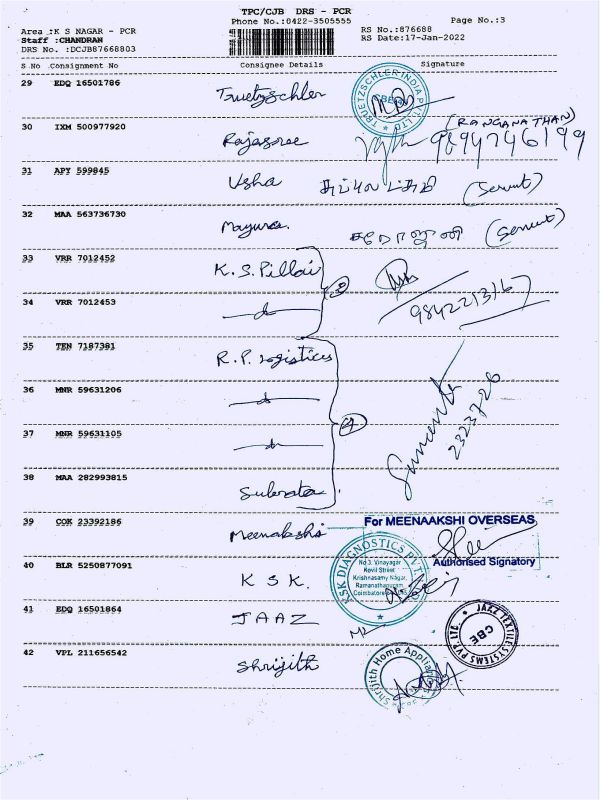 TPC/CJB DRS - PCR
Phone No.:0422-3505555
Page No.:3
Area :K S NAGAR - PCR
RS No.:876688
Staff :CHANDRAN
RS Date:17-Jan-2022
DRS No. :DCJB87668803
S No Consignment No Consignee Details Signature
29 EDQ 16501786 Truetzschler
TRUETZSCHLER INDIA PVT. LTD.
CBE
30 IXM 500977920 Rajasree
(RANGANATHAN)
9894746199
31 APY 599845 Usha (Servent)
32 MAA 563736730 Mayura. சரோஜினி (Servent)
33 VRR 7012452 K.S. Pillai
34 VRR 7012453
35 TEN 7187381 R.P. Logistices
36 MNR 59631206
37 MNR 59631105
2323726
38 MAA 282993815 Subrata
39 COK 23392186 Meenakshi
For MEENAAKSHI OVERSEAS
Authorised Signatory
40 BLR 5250877091 K S K.
KSK DIAGNOSTICS PVT LTD
No 3, Vinayagar
Kovil Street
Krishnasamy Nagar,
Ramanathapuram,
41 EDQ 16501864 JAAZ
JAZZ TEXTILE SYSTEMS PVT. LTD.
CBE
42 VPL 211656542 Shrijith
Shrijith Home Appliances